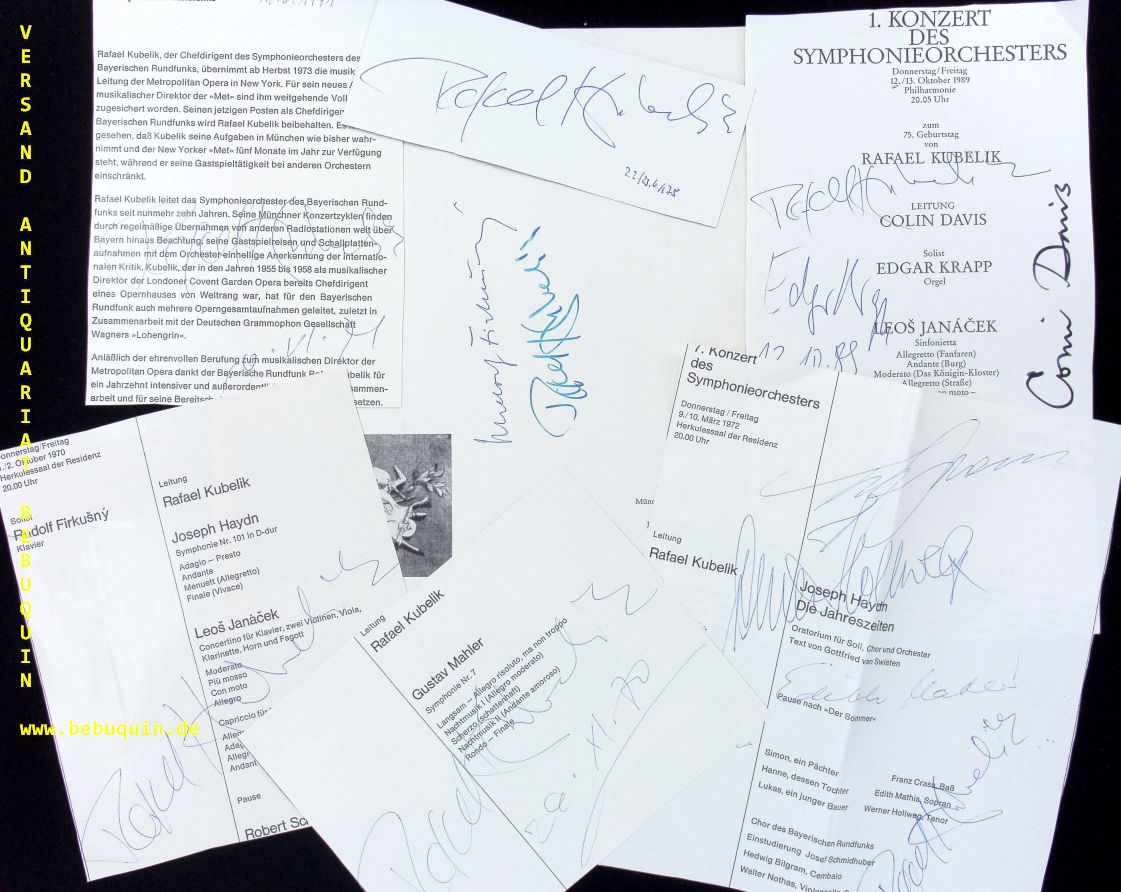 VERSAND ANTIQUARIAT BEBUQUIN
www.bebuquin.de
Rafael Kubelik, der Chefdirigent des Symphonieorchesters des
Bayerischen Rundfunks, übernimmt ab Herbst 1973 die musik
Leitung der Metropolitan Opera in New York. Für sein neues
musikalischer Direktor der »Met« sind ihm weitgehende Voll
zugesichert worden. Seinen jetzigen Posten als Chefdirigen
Bayerischen Rundfunks wird Rafael Kubelik beibehalten. Es
gesehen, daß Kubelik seine Aufgaben in München wie bisher wahr-
nimmt und der New Yorker »Met« fünf Monate im Jahr zur Verfügung
steht, während er seine Gastspieltätigkeit bei anderen Orchestern
einschränkt.
Rafael Kubelik leitet das Symphonieorchester des Bayerischen Rund-
funks seit nunmehr zehn Jahren. Seine Münchner Konzertzyklen finden
durch regelmäßige Übernahmen von anderen Radiostationen weit über
Bayern hinaus Beachtung, seine Gastspielreisen und Schallplatten-
aufnahmen mit dem Orchester einhellige Anerkennung der internatio-
nalen Kritik. Kubelik, der in den Jahren 1955 bis 1958 als musikalischer
Direktor der Londoner Covent Garden Opera bereits Chefdirigent
eines Opernhauses von Weltrang war, hat für den Bayerischen
Rundfunk auch mehrere Operngesamtaufnahmen geleitet, zuletzt in
Zusammenarbeit mit der Deutschen Grammophon Gesellschaft
Wagners »Lohengrin«.
Anläßlich der ehrenvollen Berufung zum musikalischen Direktor der
Metropolitan Opera dankt der Bayerische Rundfunk Rafael Kubelik für
ein Jahrzehnt intensiver und außerordentl
sammen-
arbeit und für seine Bereitsch
setzen.
Rafael Kubelik
Rafael Kubelik
Rudolf Firkušný
Rafael Kubelik
1. KONZERT
DES
SYMPHONIEORCHESTERS
Donnerstag/Freitag
12./13. Oktober 1989
Philharmonie
20.05 Uhr
zum
75. Geburtstag
von
RAFAEL KUBELIK
Rafael Kubelik
LEITUNG
COLIN DAVIS
Solist
EDGAR KRAPP
Orgel
Edgar Krapp
12.10.89
Colin Davis
LEOŠ JANÁČEK
Sinfonietta
Allegretto (Fanfaren)
Andante (Burg)
Moderato (Das Königin-Kloster)
Allegretto (Straße)
Donnerstag/Freitag
1./2. Oktober 1970
Herkulessaal der Residenz
20.00 Uhr
Solist
Rudolf Firkušný
Klavier
Leitung
Rafael Kubelik
Joseph Haydn
Symphonie Nr. 101 in D-dur
Adagio – Presto
Andante
Menuett (Allegretto)
Finale (Vivace)
Leoš Janáček
Concertino für Klavier, zwei Violinen, Viola,
Klarinette, Horn und Fagott
Moderato
Più mosso
Con moto
Allegro
Capriccio für
Pause
Robert Sc
Rafael Kubelik
Leitung
Rafael Kubelik
Gustav Mahler
Symphonie Nr. 7
Langsam – Allegro risoluto, ma non troppo
Nachtmusik I (Allegro moderato)
Scherzo (schattenhaft)
Nachtmusik II (Andante amoroso)
Rondo – Finale
Rafael Kubelik
1. Konzert
des
Symphonieorchesters
Donnerstag / Freitag
9./10. März 1972
Herkulessaal der Residenz
20.00 Uhr
Leitung
Rafael Kubelik
Werner Hollweg
Joseph Haydn
Die Jahreszeiten
Oratorium für Soli, Chor und Orchester
Text von Gottfried van Swieten
Edith Mathis
Pause nach »Der Sommer«
Simon, ein Pächter Franz Crass, Baß
Hanne, dessen Tochter Edith Mathis, Sopran
Lukas, ein junger Bauer Werner Hollweg, Tenor
Chor des Bayerischen Rundfunks
Einstudierung Josef Schmidhuber
Hedwig Bilgram, Cembalo
Walter Nothas,
Rafael Kubelik